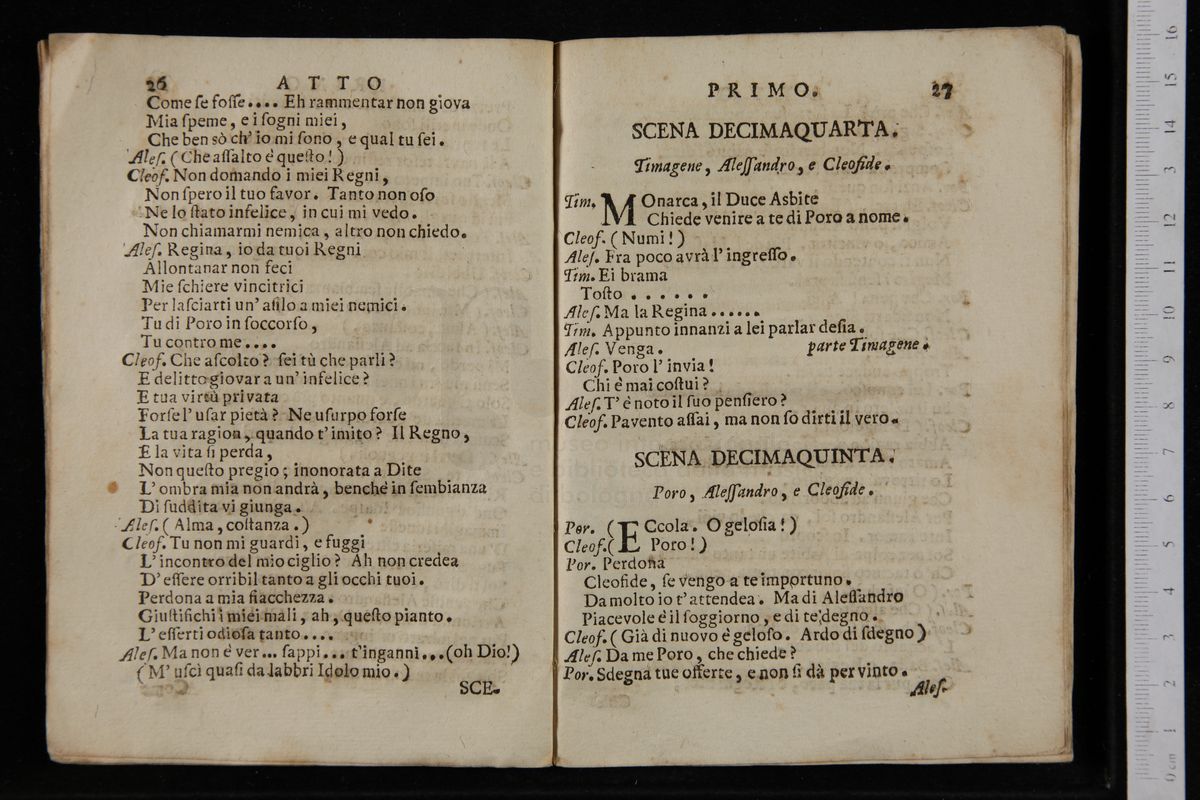 26 ATTO
Come ſe foſſe.... Eh rammentar non giova
Mia ſpeme, e i ſogni miei,
Che ben sò ch' io mi ſono, e qual tu ſei.
Aleſ. (Che aſſalto è queſto!)
Cleof. Non domando i miei Regni,
Non ſpero il tuo favor. Tanto non oſo
Ne lo ſtato infelice, in cui mi vedo.
Non chiamarmi nemica, altro non chiedo.
Aleſ. Regina, io da tuoi Regni
Allontanar non feci
Mie ſchiere vincitrici
Per laſciarti un' aſilo a miei nemici.
Tu di Poro in ſoccorſo,
Tu contro me....
Cleof. Che aſcolto? ſei tù che parli?
E delitto giovar a un' infelice?
E tua virtù privata
Forſe l' uſar pietà? Ne uſurpo forſe
La tua ragion, quando t' imito? Il Regno,
E la vita ſi perda,
Non queſto pregio; inonorata a Dite
L' ombra mia non andrà, benchè in ſembianza
Di ſuddita vi giunga.
Aleſ. (Alma, coſtanza.)
Cleof. Tu non mi guardi, e fuggi
L' incontro del mio ciglio? Ah non credea
D' eſſere orribil tanto a gli occhi tuoi.
Perdona a mia fiacchezza.
Giuſtifichi i miei mali, ah, queſto pianto.
L' eſſerti odioſa tanto....
Aleſ. Ma non è ver... ſappi... t'inganni...(oh Dio!)
(M' uſcì quaſi da labbri Idolo mio.)
SCE-
PRIMO. 27
SCENA DECIMAQUARTA.
Timagene, Aleſſandro, e Cleofide.
Tim. MOnarca, il Duce Asbite
Chiede venire a te di Poro a nome.
Cleof. (Numi!)
Aleſ. Fra poco avrà l' ingreſſo.
Tim. Ei brama
Toſto ......
Aleſ. Ma la Regina ......
Tim. Appunto innanzi a lei parlar deſia.
Aleſ. Venga. parte Timagene.
Cleof. Poro l' invia!
Chi è mai coſtui?
Aleſ. T' è noto il ſuo penſiero?
Cleof. Pavento aſſai, ma non ſo dirti il vero.
SCENA DECIMAQUINTA.
Poro, Aleſſandro, e Cleofide.
Por. (ECcola. O geloſia!)
Cleof. (Poro!)
Por. Perdona
Cleofide, ſe vengo a te importuno.
Da molto io t' attendea. Ma di Aleſſandro
Piacevole è il ſoggiorno, e di te degno.
Cleof. (Già di nuovo è geloſo. Ardo di ſdegno)
Aleſ. Da me Poro, che chiede?
Por. Sdegna tue offerte, e non ſi dà per vinto.
Aleſ.